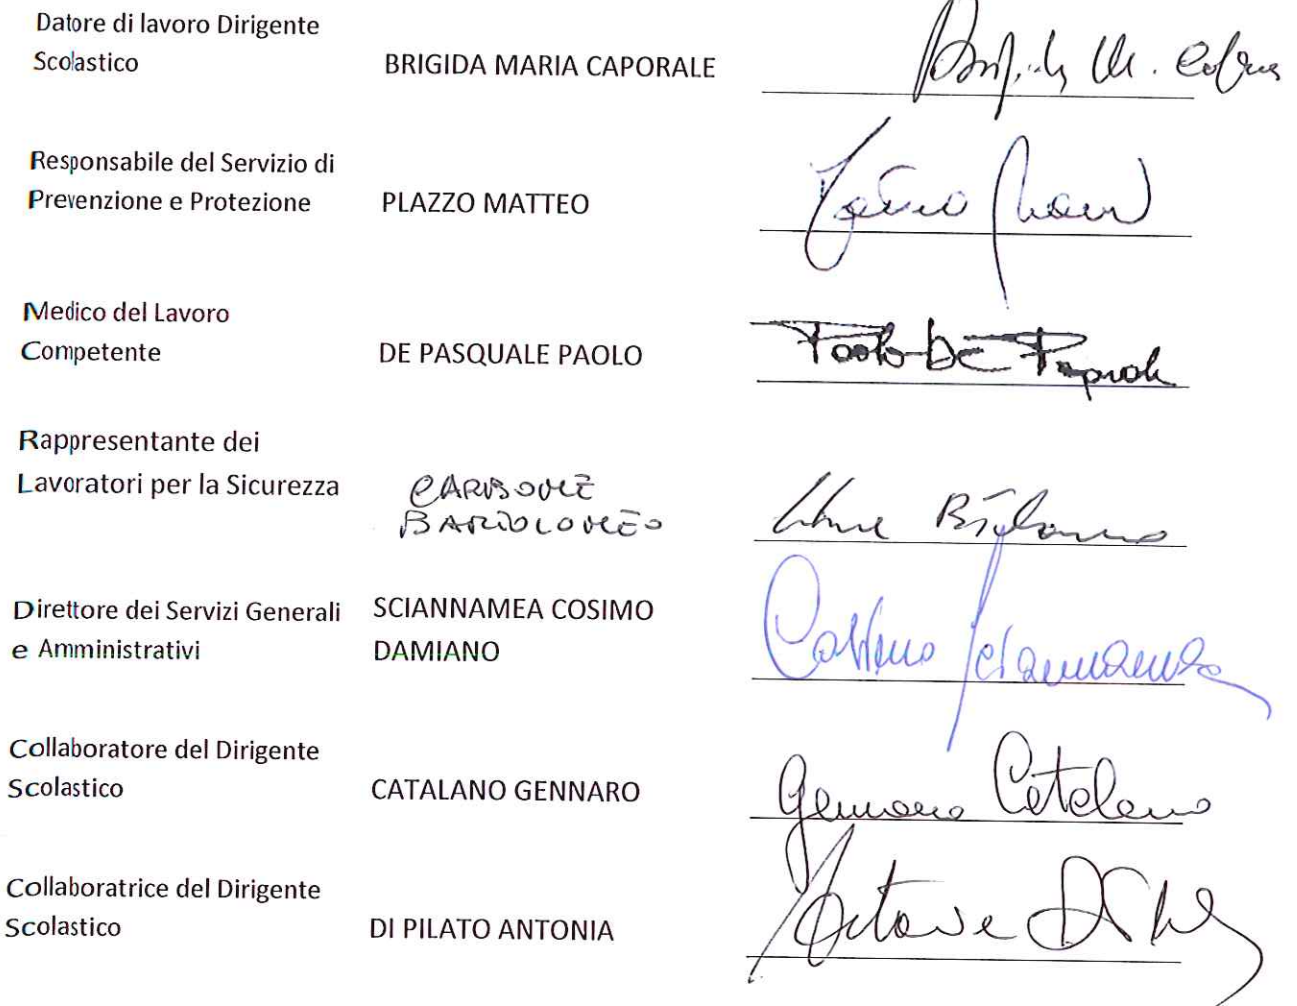 Datore di lavoro Dirigente
Scolastico
BRIGIDA MARIA CAPORALE
Responsabile del Servizio di
Prevenzione e Protezione
PLAZZO MATTEO
Medico del Lavoro
Competente
DE PASQUALE PAOLO
Paolo DE
Rappresentante dei
Lavoratori per la Sicurezza
CARBONE
BARTOLOMEO
Direttore dei Servizi Generali
e Amministrativi
SCIANNAMEA COSIMO
DAMIANO
Cosimo Sciannamea
Collaboratore del Dirigente
Scolastico
CATALANO GENNARO
Gennaro Catalano
Collaboratrice del Dirigente
Scolastico
DI PILATO ANTONIA